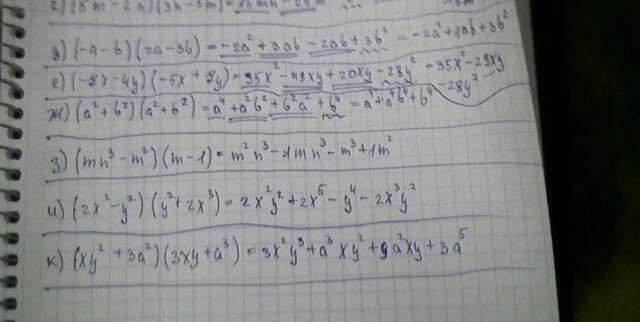 г) (5m-2n)(3n-5m)=25mn-25m
д) (-a-b)(2a-3b)=-2a²+3ab-2ab+3b²=-2a²+1ab+3b²
е) (-7x-4y)(-5x+7y)=35x²-49xy+20xy-28y²=35x²-29xy
-28y²
ж) (a²+b²)(a²+b²)=a⁴+a²b²+b²a²+b⁴=a⁴+a⁴b⁴+b⁴
з) (mn³-m²)(m-1)=m²n³-1mn³-m³+1m²
и) (2x²-y²)(y²+2x³)=2x²y²+2x⁵-y⁴-2x³y²
к) (xy²+3a²)(3xy+a³)=3x²y³+a³xy²+9a²xy+3a⁵